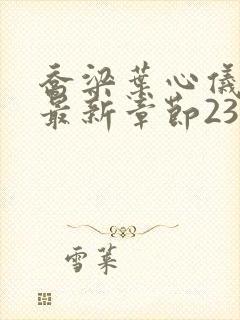 乔梁叶心仪
最新章节23
雪莱